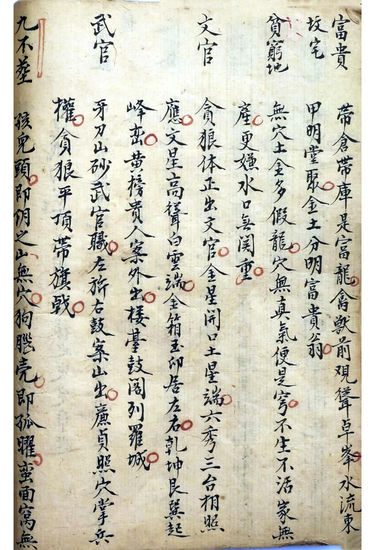 富貴
坟宅
帶倉帶庫是富龍禽獸前現聳卓峯水流東
甲明堂聚金土分明富貴翁
貧窮地
無穴土金多假龍穴無真氣便是窮不生不活家無
產更嫌水口無関重
文官
貪狼体正出文官金星開口土星端六秀三台相照
應文星高聳白雲端金箱玉印居左右乾坤艮巽起
峰巒黃榜貴人案外出楼臺鼓阁列羅城
武官
牙刀山砂武官職左旂右鼓案山出廉貞照穴掌兵
權貪狼平頂帶旗戟
九不塟
孩兒頭即 之山無穴狗腦売即孤曜蛮面窩無